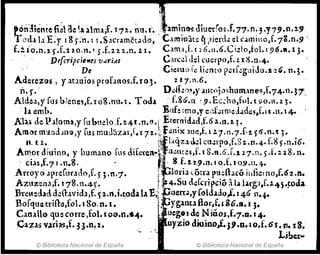 pondiente fial de la alma, f. 172. nu. 1.
Toda la E. y 185. n. 11. Sacramétado,
f. 210. n. 25. f. 220. n. 1 3. f. 222. n. 21.
Descripciones varias
De
Aderezos, y atauios profanos. f. 103.
n. 5.
Aldea, y sus bienes, f. 108. nu. 1. Toda
la emb.
Alas de Paloma, y su buelo. f. 241. n. 9.
Amor mundano, y sus mudãzas, f. 172.
n. 12.
Amor diuino, y humano sus diferen-
cias, f. 71. n. 8.
Arroyo apresurado, f. 53. n. 7.
Azuzena, f. 178. n. 45.
Breuedad desta vida, f. 52. n. 1. toda la E.
Bosque triste, fol. 180. n. 1.
Cauallo que corre, fol. 100. n. 4.
Cazas varias, f. 33. n. 2.
Caminos diuersos. f. 77. n. 3. y 79. n. 29
Caminãte q̃ pierda el camino, f. 78. n. 9
Cama, f. 126. n. 6. Cielo, fol. 196. n. 13.
Carcel del cuerpo, f. 218. n. 4.
Cieruo
217. n. 6.
Desseos, y antojos humanos, f. 74. n. 37.
f. 86. n 9. Eccho, fol. 190. n. 23.
Enfermo, y enfermedades, f. 11. n. 14.
Eternidad, f. 62. n. 23.
Fenix aue, f. 127. n. 7. f. 256. n. 13.
Flaqza del cuerpo, f. 82. n. 4. f. 85. n. 16.
8 f. 219. n. 10. f. 109. n. 4.
Gloria cõtra puestacõ infierno, f. 62. n.
24. Su descripciõ à la larga, f. 245. toda
Guerra, y soldado, f. 146 n. 4.
Gyganta flor, f. 186. n. 13.
Iuegos de Niños, f. 7. n. 14.
Iuyzio diuino, f. 39. n. 10. f. 61. n. 18.
Liber-
© Biblioteca Nacional de España
© Biblioteca Nacional de España